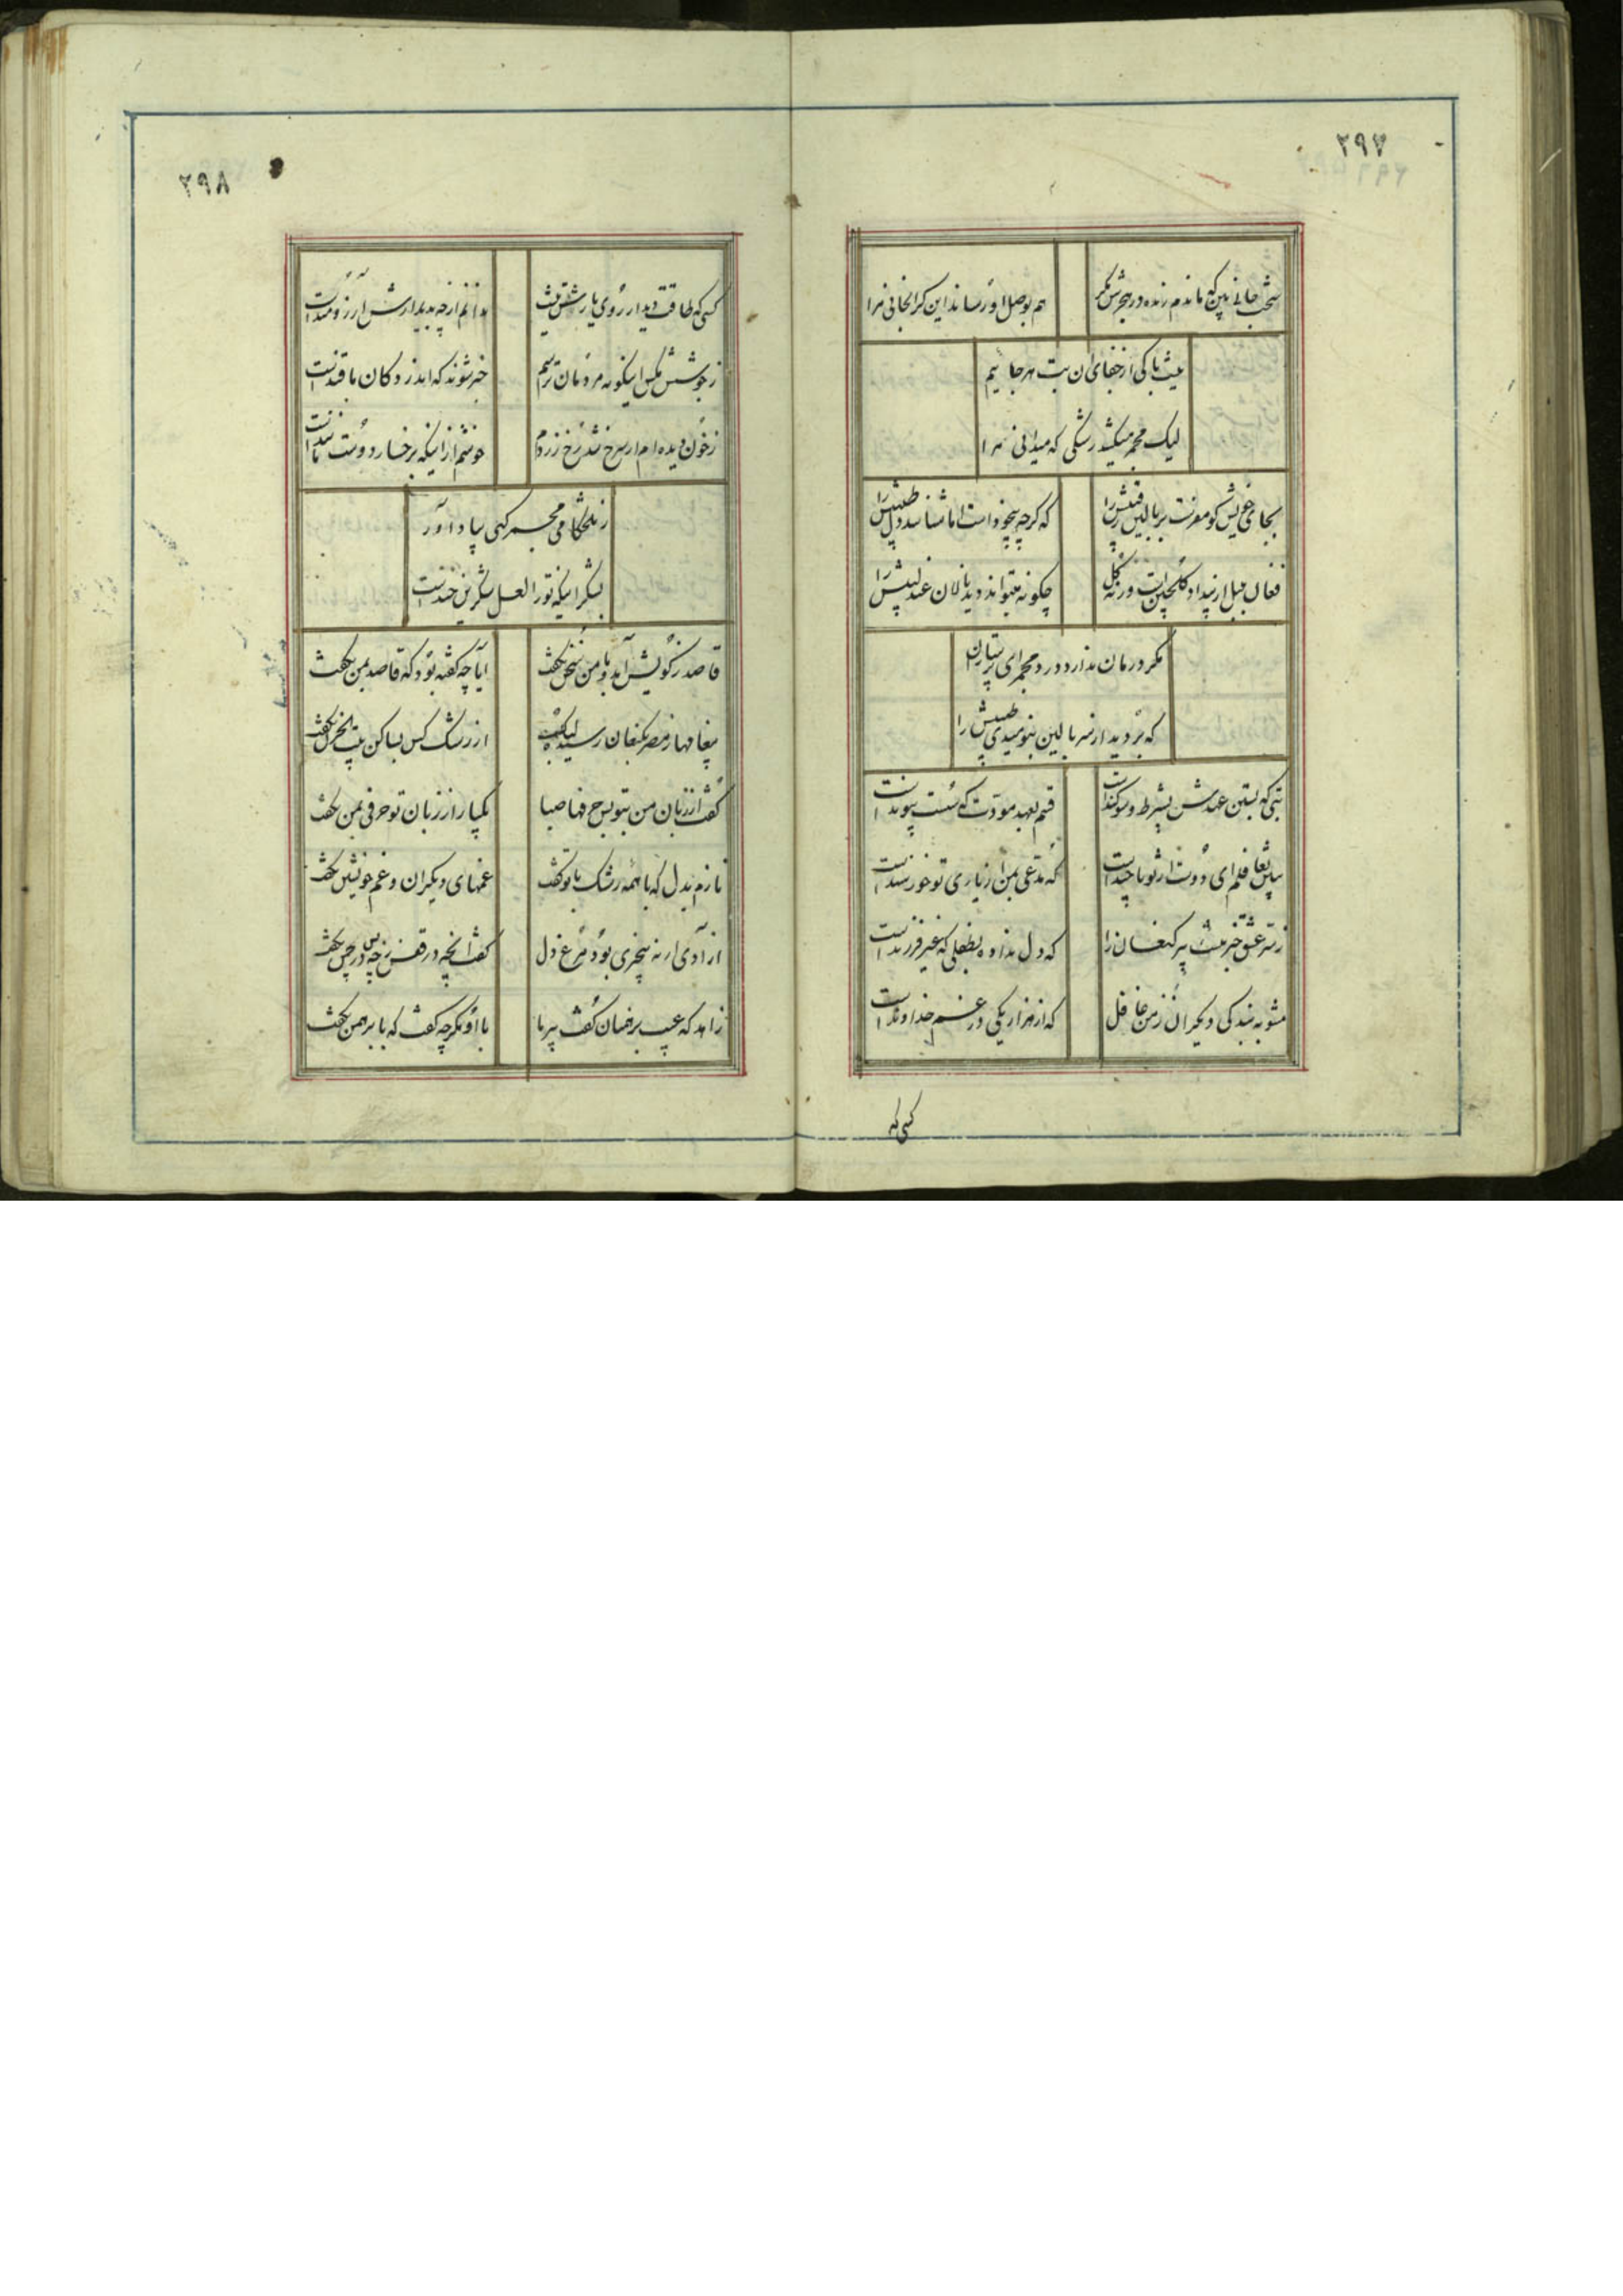 ۲۹۷
سخت جانی بین که ماندم زنده در هجرش مگر
هم بوصل او رساند این گرانجانی مرا
نیست باکی از جفای آن بت هرجائیم
لیک مجمر میکشد رشکی که میدانی مرا
بجای خویش گو مفرست بر بالین رقیبش را
که گرچه بیخود است اما شناسد دل طبیبش را
فغان بلبل از بیداد گلچین است ورنه گل
چگونه میتواند دید نالان عندلیبش را
مگر درمان ندارد درد مجمر ای پرستاران
که برد ید از سر بالین بنومیدی طبیبش را
بتی که بستن عهدش بشرط و سوگند است
قسم بعهد مودت که سست پیوند است
بس تغافلم ای دوست از تو تا چند است
که مدعی بمن از یاری تو خورسند است
ز سر عشق خبر نیست پیر کنعان را
که دل نداده بطفلی که غیر فرزند است
مشو به بندگی دیگران ز من غافل
که از هزار یکی در غم خداوند است
کسی که
۲۹۸
کسی که طاقت دیدار روی یارش نیست
ندانم از چه بدیدارش آرزومند است
ز جوش مگس اینگونه مردمان ترسم
خبر شوند که اندر دکان ما قند است
ز خون دیده ام ار سرخ شد رخ زردم
خوشم از اینکه برخسار دوست مانند است
ز تلخکامی مجمر گهی بیاد آور
بشکر اینکه تو را لعل شکرین خند است
قاصد ز کویش آمد و با من سخن نگفت
آیا چه گفته بود که قاصد بمن نگفت
پیغامها ز مصر بکنعان رسید لیک
از رشک کس بساکن بیت الحزن نگفت
گفت از زبان من بتو بس حرفها صبا
یکبار از زبان تو حرفی بمن نگفت
نازم بدل که با همه رشک با تو گفت
غمهای دیگران و غم خویشتن نگفت
از آدمی ار نه بیخبری بود مرغ دل
گفت آنچه در قفس ز چه پس در چمن نگفت
زاهد که عیب برهمنان گفت پیر ما
با او مگر چه گفت که با برهمن نگفت